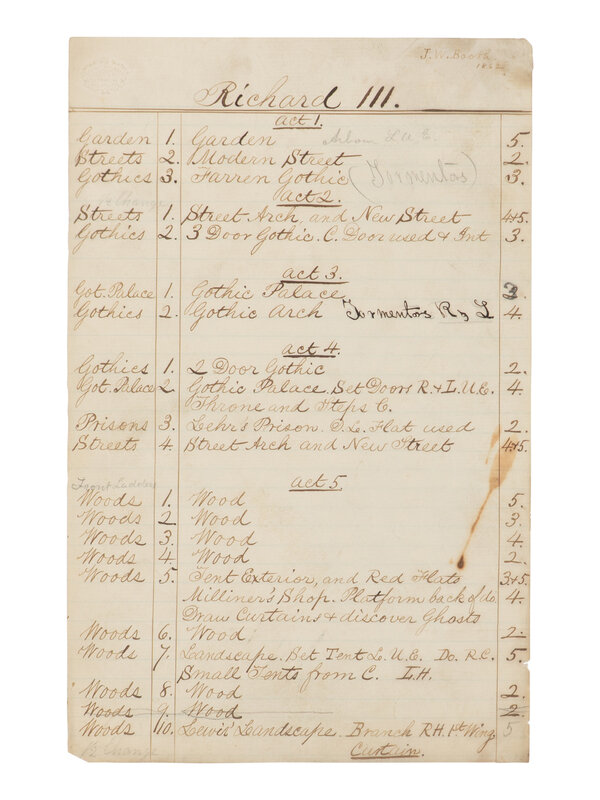 J. W. Booth
Richard III.
Act 1.
Garden 1. Garden Arbor L U E 5.
Streets 2. Modern Street 2.
Gothics 3. Farren Gothic (Tormentors) 3.
½ Change
Act 2.
Streets 1. Street Arch, and New Street 4+5.
Gothics 2. 3 Door Gothic. C. Door used & Int 3.
Act 3.
Got. Palace 1. Gothic Palace 3
Gothics 2. Gothic Arch Tormentors R & L 4.
Act 4.
Gothics 1. 2 Door Gothic 2.
Got. Palace 2 Gothic Palace. Set Doors R. & L. U. E. 4.
Throne and Steps C.
Prisons 3. Lehr's Prison. C. L. Flat used 2.
Streets 4. Street Arch and New Street 4+5.
Act 5.
Front Ladders
Woods 1. Wood 5.
Woods 2. Wood 3.
Woods 3. Wood 4.
Woods 4. Wood 2.
Woods 5. Tent Exterior, and Red Flats 3+5.
Milliner's Shop. Platform back of do. 4.
Draw Curtains & discover Ghosts
Woods 6. Wood 2.
Woods 7. Landscape. Set Tent L. U. E. Do. R. C. 5.
Small Tents from C. L. H.
Woods 8. Wood 2.
Woods 9. Wood 2.
Woods 10. Lewis' Landscape. Branch R H. 1st Wing 5
½ Change Curtain.